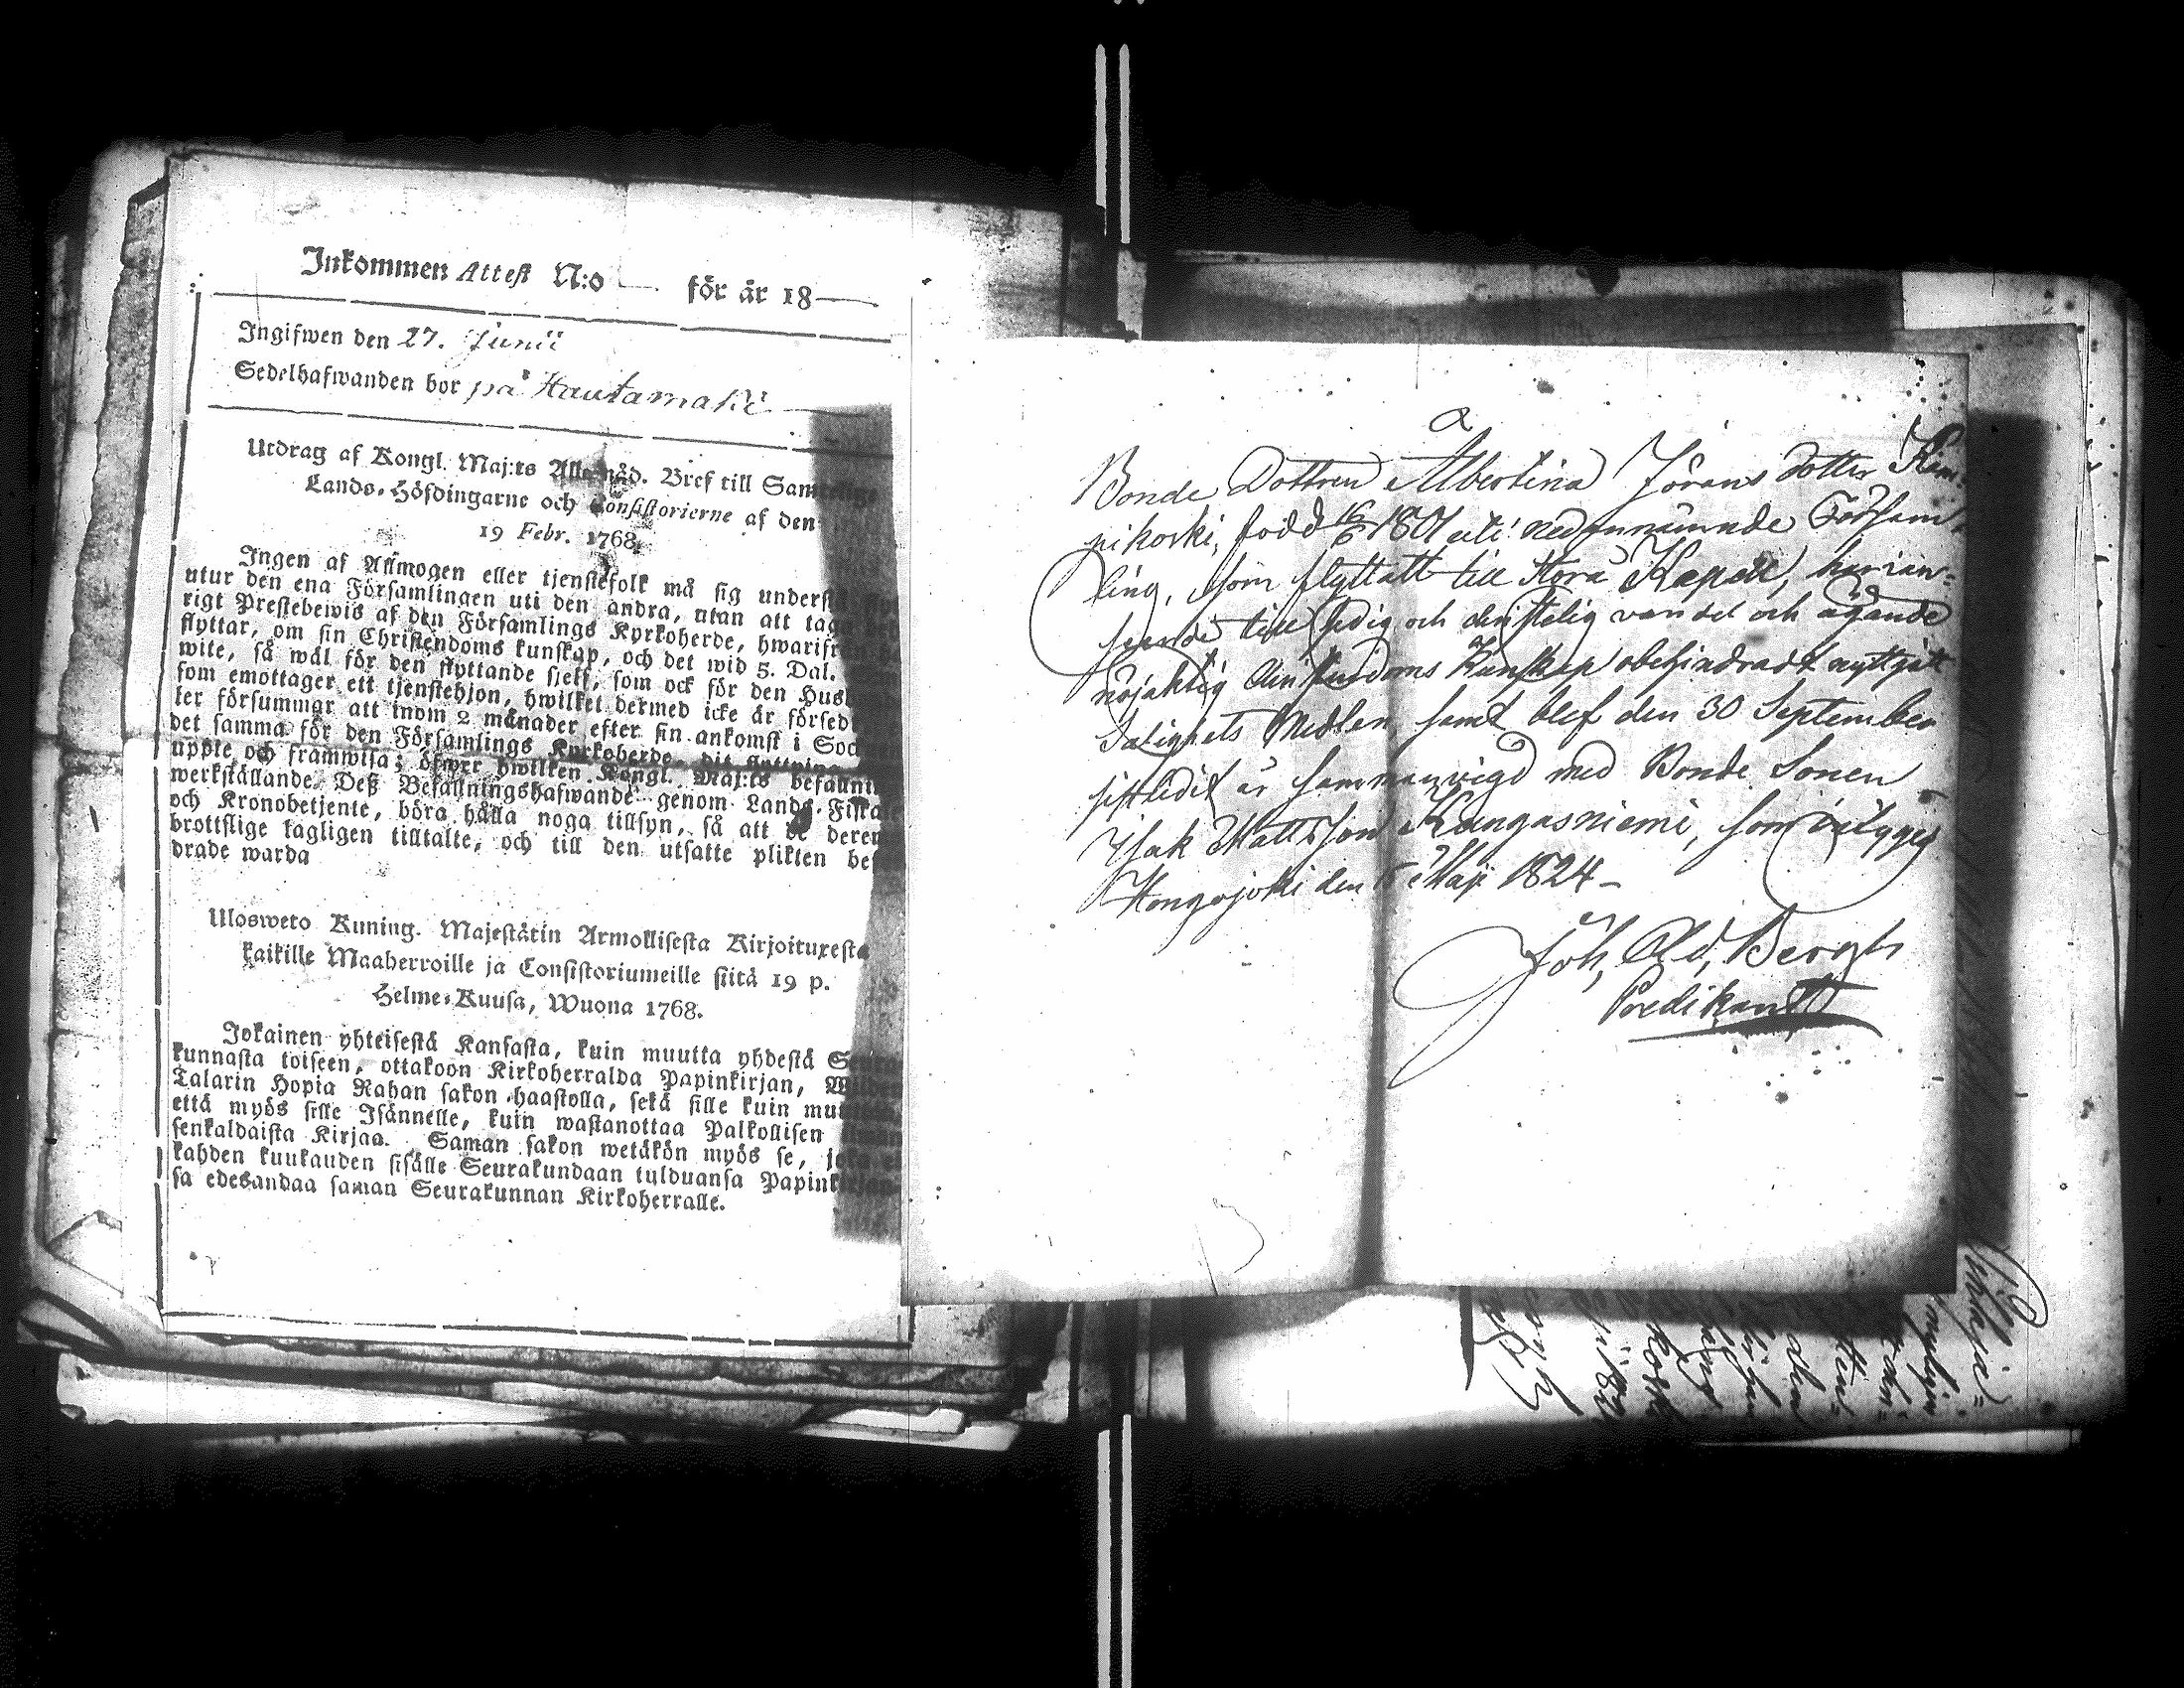 Inkommen Attest N:o — för år 18—
Ingifwen den 27. Junii
Sedelhafwanden bor på Hautamaki
Utdrag af Kongl. Maj:ts Allernåd. Bref till Samtelige
Lands-Höfdingarne och Consistorierne af den
19 Febr. 1768.
Ingen af Allmogen eller tjenstefolk må sig understå
utur den ena Församlingen uti den andra, utan att taga
rigt Prestebewis af den Församlings Kyrkoherde, hwarifr
flyttar, om sin Christendoms kunskap, och det wid 5. Dal.
wite, så wäl för den flyttande sjelf, som ock för den Hus
som emottager ett tjenstehjon, hwilket dermed icke är försed
ler försummar att inom 2 månader efter sin ankomst i Soc
det samma för den Församlings Kyrkoherde, dit flyttning
uppte och framwisa; öfwer hwilken Kongl. Maj:ts befallni
werkställande Deß Befallningshafwande genom Lands-Fiska
och Kronobetjente, böra hålla noga tillsyn, så att de deren
brottslige lagligen tilltalte, och till den utsatte plikten be
drade warda
Ulosweto Kuning. Majestätin Armollisesta Kirjoituxesta
kaikille Maaherroille ja Consistoriumeille siitä 19 p.
Helme-Kuusa, Wuona 1768.
Jokainen yhteisestä Kansasta, kuin muutta yhdestä Seura-
kunnasta toiseen, ottakoon Kirkoherralda Papinkirjan,
Talarin Hopia Rahan sakon haastolla, sekä sille kuin mu
että myös sille Isännelle, kuin wastanottaa Palkollisen
senkaldaista Kirjaa. Saman sakon wetäkön myös se, joka ei
kahden kuukauden sisälle Seurakundaan tulduansa Papinkirjan-
sa edesandaa saman Seurakunnan Kirkoherralle.
Bonde Dottren Albertina Jörans dotter Kam-
pikoski, född 16/6 1801 uti nedannämnde Försam-
ling, som flyttatt till Stora, härian-
seende till ledig och christelig vandel och ägande
nöjaktig Christendoms Kunskap obehindradt nyttjatt
Salighets Medlen, samt blef den 30 September
sistledit år sammanvigd med Bonde Sonen
Isak Mattsson Kangasniemi, som intygges
Kongojoki den Maji 1824 —
Joh, Ad, Bergh
Predikant